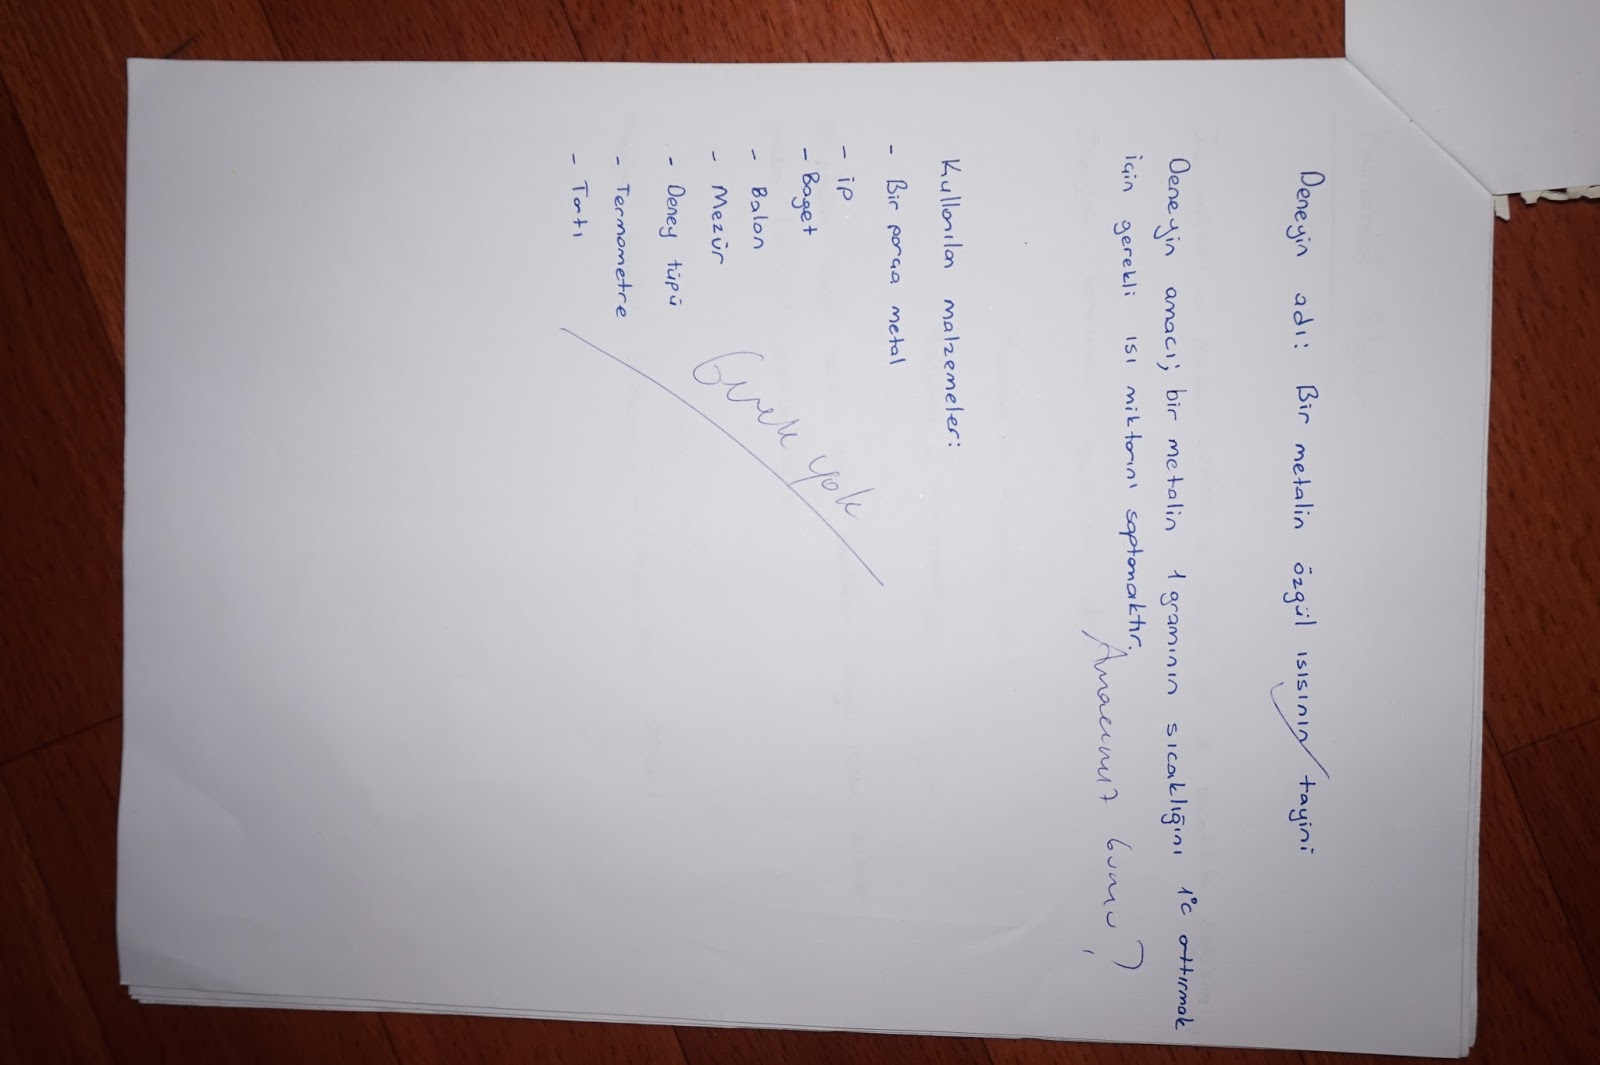 Deneyin adı: Bir metalin özgül ısısının tayini
Deneyin amacı; bir metalin 1 gramının sıcaklığını 1°C arttırmak
için gerekli ısı miktarını saptamaktır.
Amacımız bumu?
Kullanılan malzemeler:
- Bir parça metal
- İp
- Baget
- Balon
- Mezür
- Deney tüpü
- Termometre
- Tartı
Gerek yok